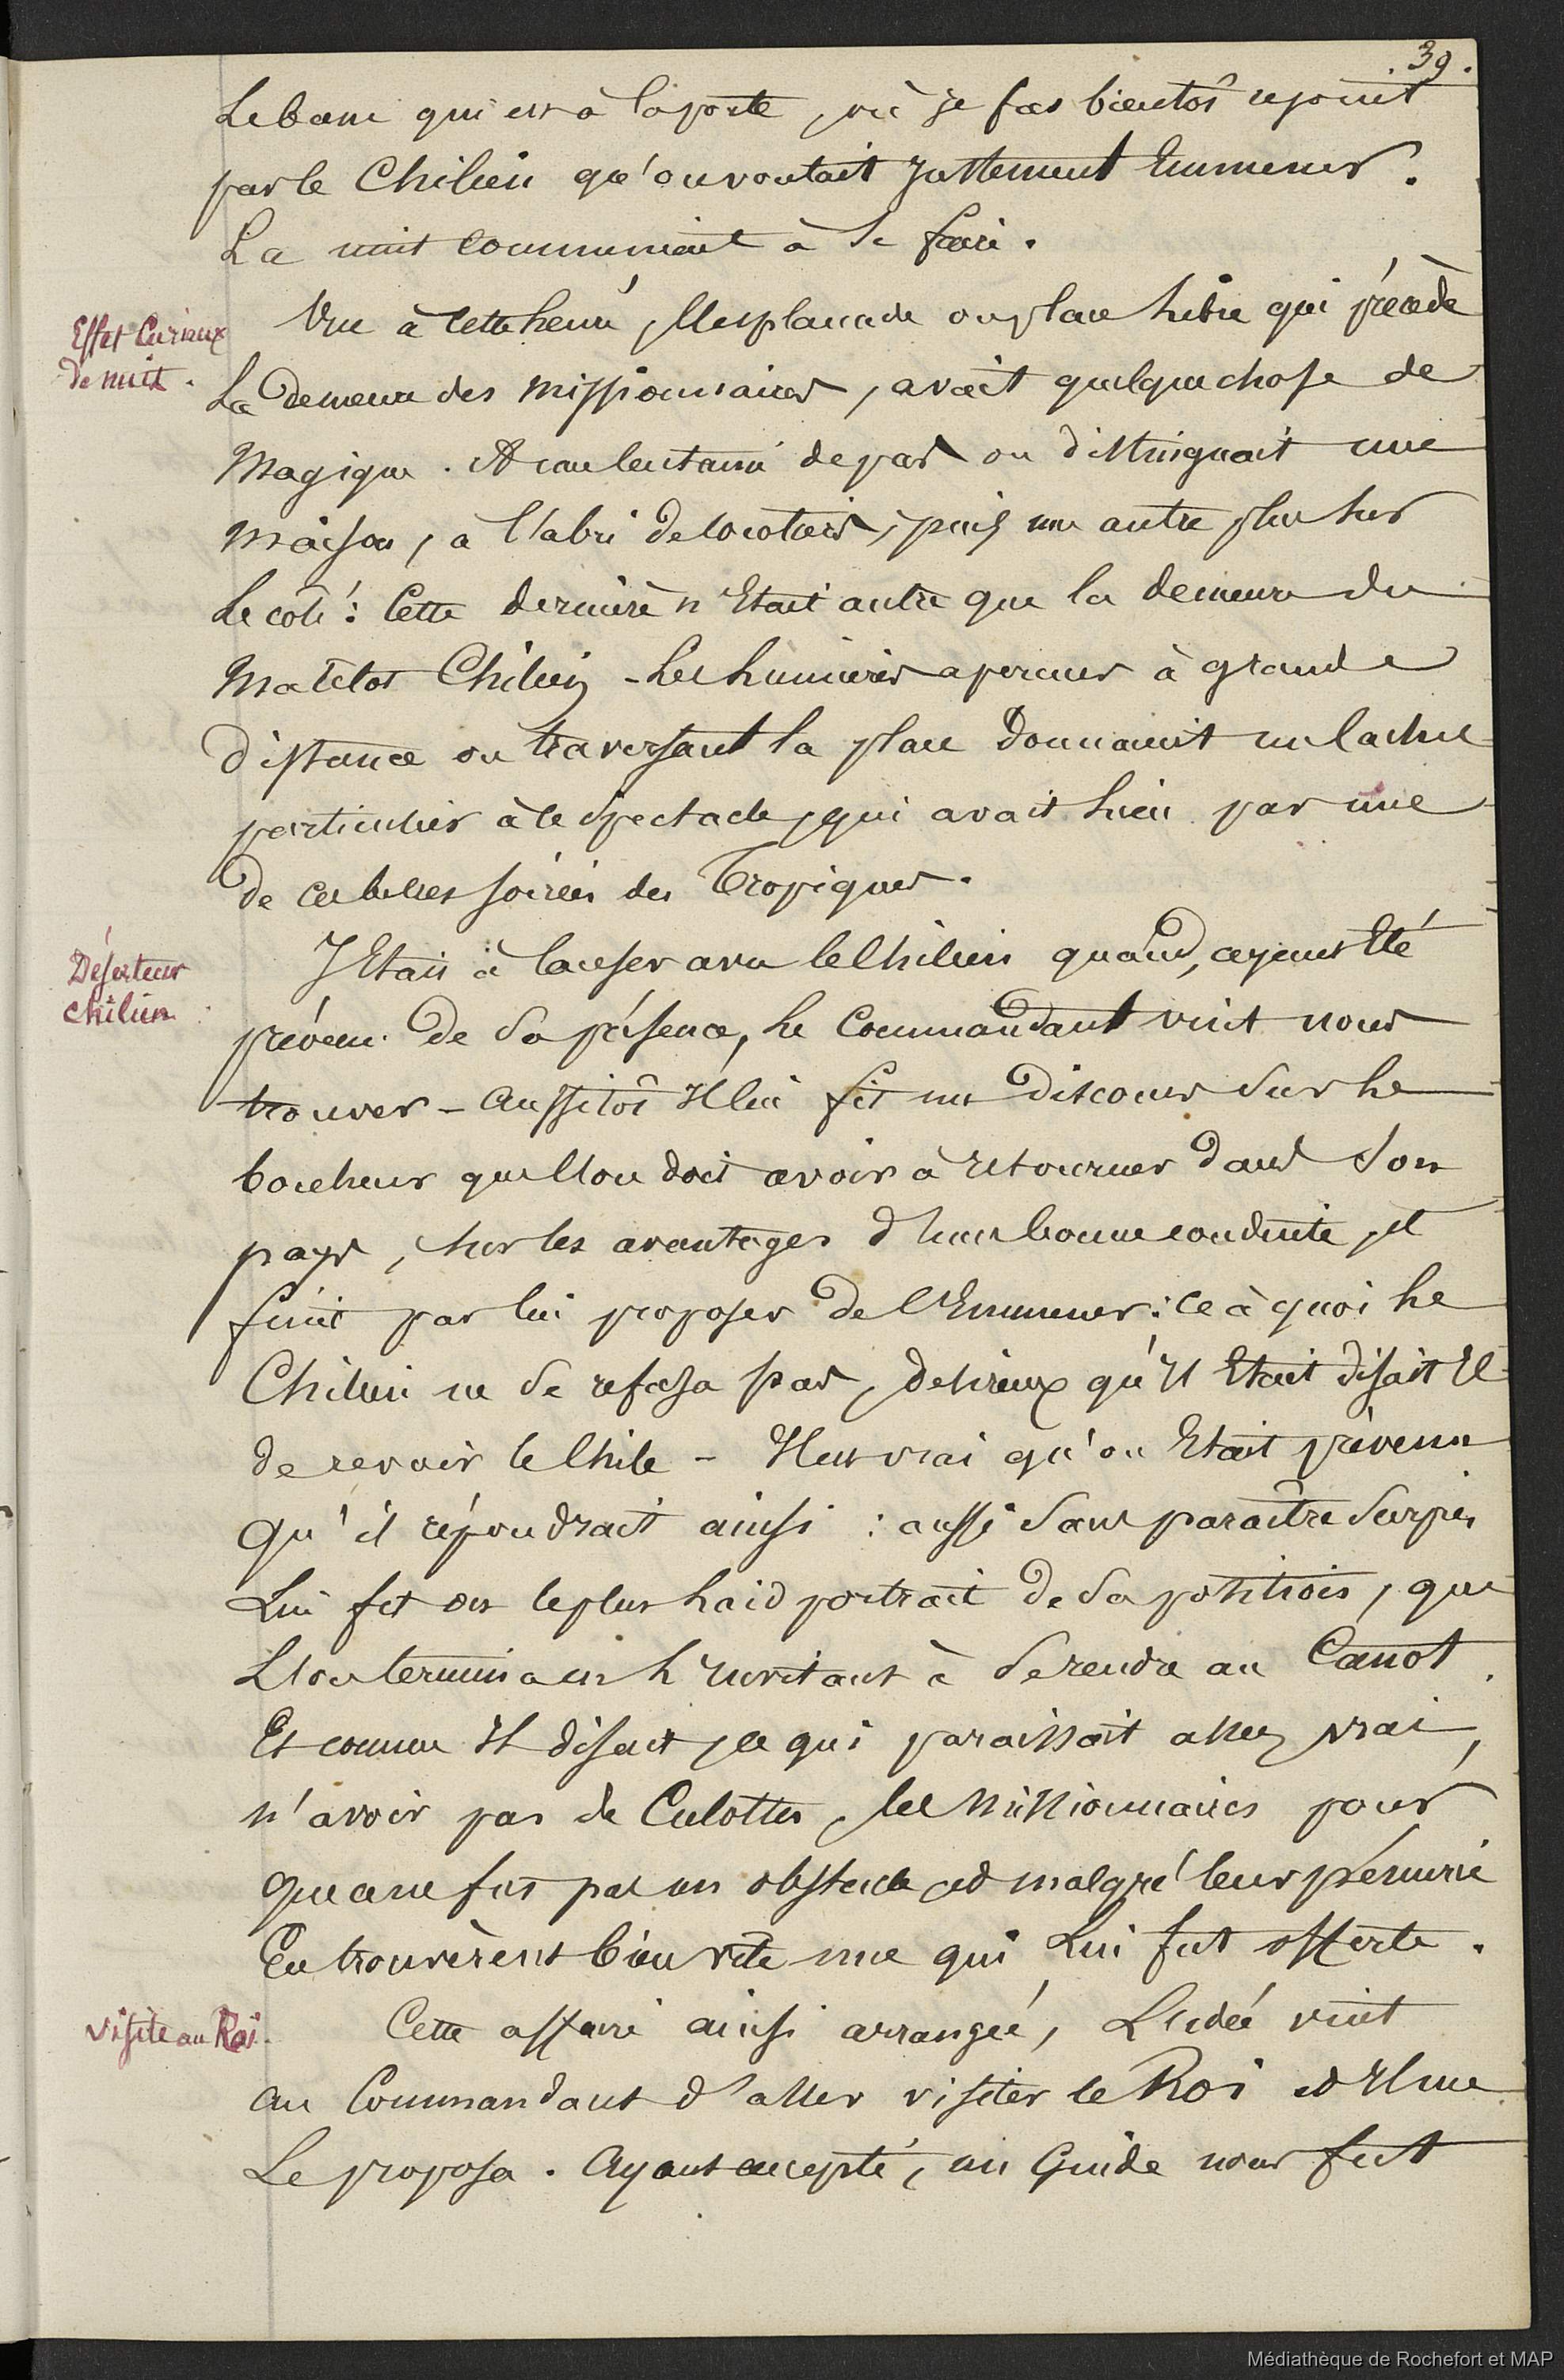 . 39 .
Le banc qui est à la porte, où je fus bientôt rejoint
par le Chilien qu'on voulait justement Emmener.
La nuit commencait à se faire.
Effet Curieux
de nuit.
Vue à cette heure, l'esplanade ou place libre qui précède
La demeure des Missionnaires, avait quelque chose de
Magique. A une centaine de pas on distinguait une
Maison, à l'abri de cocotiers, puis une autre plus sur
Le côté : Cette dernière n'Etait autre que la demeure du
Matelot Chilien - Les lumières apercues à grande
distance ou traversant la place donnaient un cachet
particulier à ce Spectacle, qui avait lieu par une
de ces belles soirées des Tropiques.
Déserteur
chilien.
J'Etais à causer avec le Chilien quand, ayant Eté
prévenu de Sa présence, le Commandant vint nous
trouver - Aussitôt Il lui fit un Discours Sur le
bonheur que l'on doit avoir à retourner dans Son
pays, sur les avantages d'une bonne conduite, et
finit par lui proposer de l'Emmener : Ce à quoi le
Chilien ne Se refusa pas, desireux qu'Il Etait disait Il
de revoir le Chili - Il est vrai qu'on Etait prévenu
qu'il répondrait ainsi : aussi Sans paraître Surpris
Lui fit on le plus laid portrait de Sa position, que
L'on termina en l'invitant à Se rendre au Canot.
Et comme Il disait, ce qui paraissait assez vrai,
n'avoir pas de Culottes, les Missionnaires pour
que ce ne fut pas un obstacle, et malgré leur pénurie
En trouvèrent bien vite une qui Lui fut offerte.
Visite au Roi.
Cette affaire ainsi arrangée, L'idée vint
au Commandant d'aller visiter le Roi et Il me
Le proposa. Ayant accepté, un Guide nous fut
Médiathèque de Rochefort et MAP